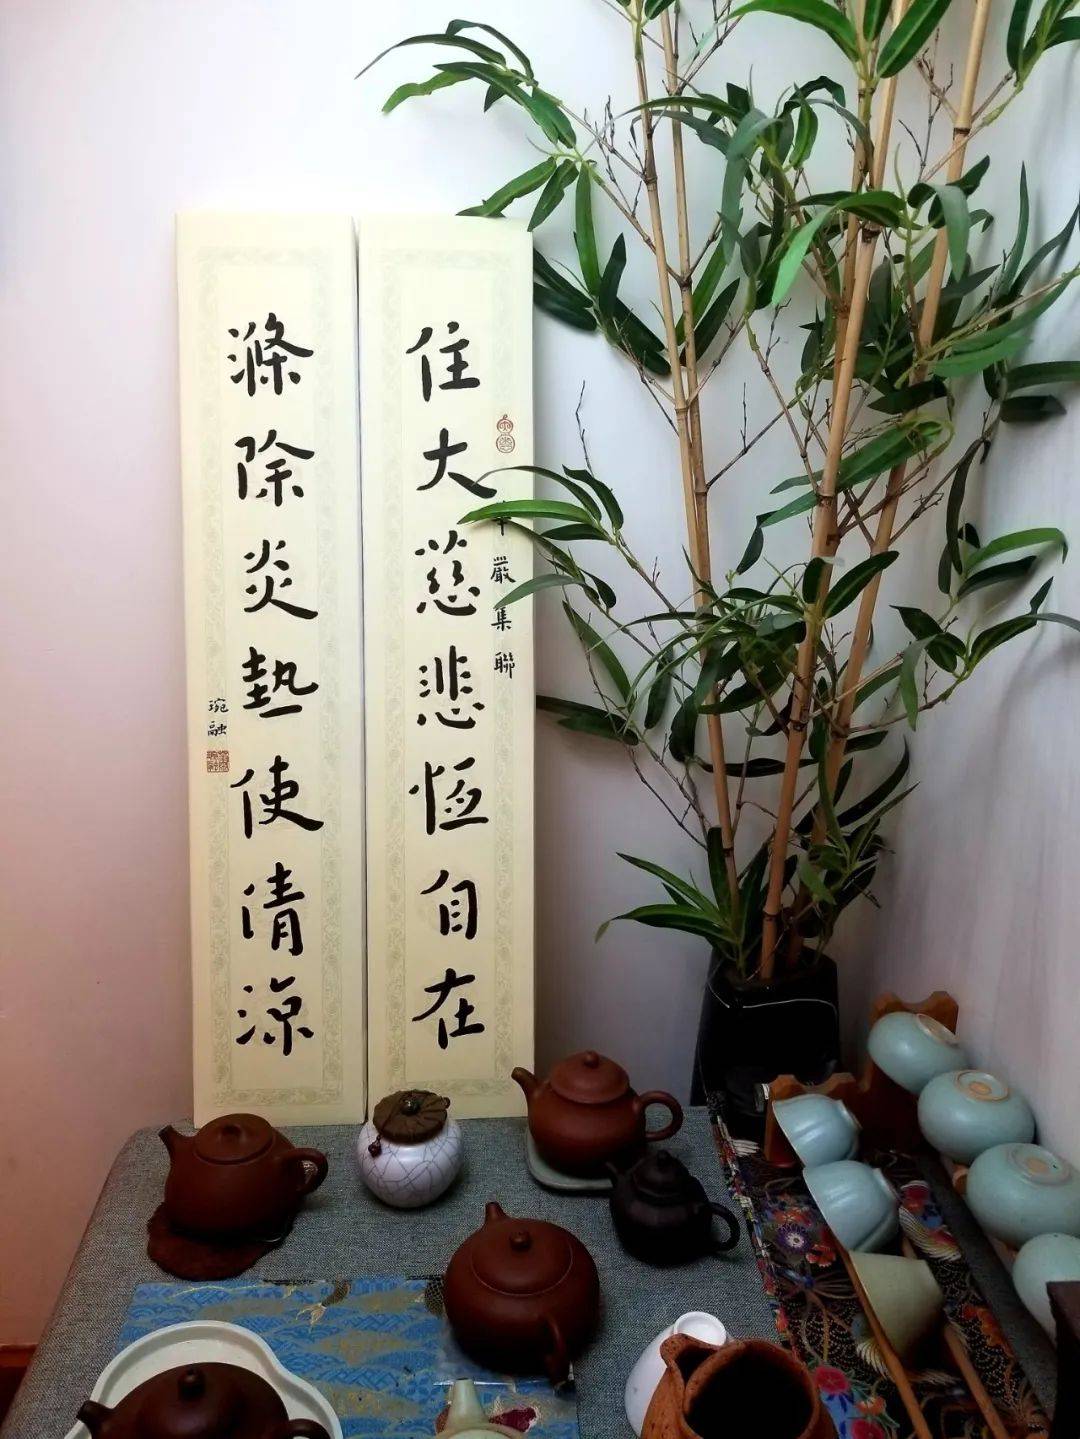 住大慈悲恒自在
嚴集聯
滌除炎熱使清涼
琬融